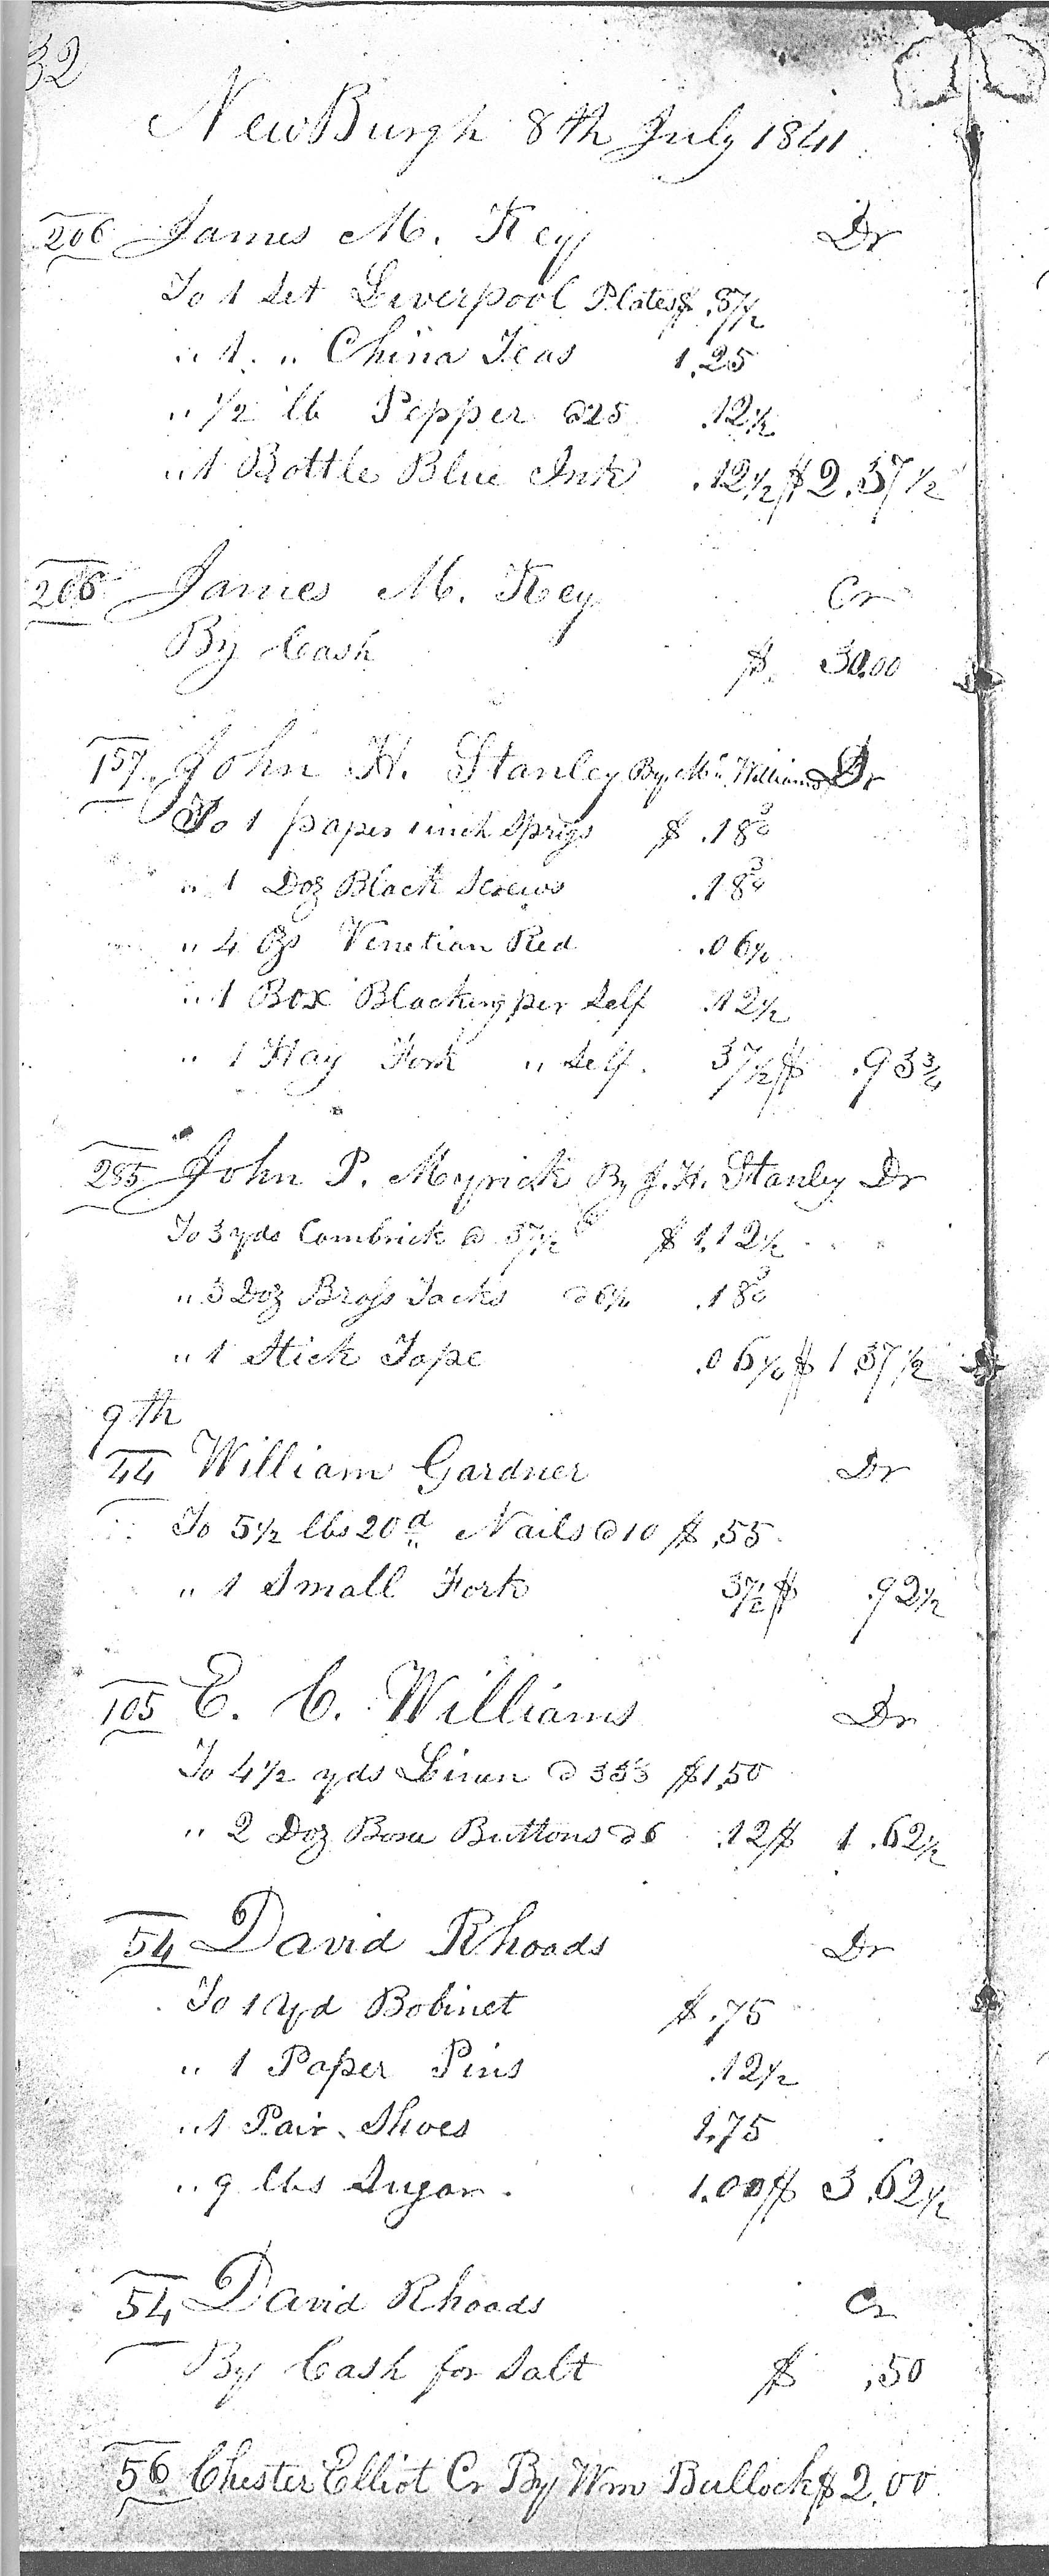 32
NewBurgh 8th July 1841
206 James M. Key Dr
To 1 Set Liverpool Plates $ .87½
" 1 " China Teas 1.25
" ½ lb Pepper @25 .12½
" 1 Bottle Blue Ink .12½ $2.37½
206 James M. Key Cr
By Cash $ 30.00
157 John H. Stanley By Mr Williams Dr
To 1 paper 1 inch Sprigs $ .18¾
" 1 Doz Black Screws .18¾
" 4 Ozs Venetian Red .06¼
" 1 Box Blacking per Self .12½
" 1 Hay Fork " Self. 37½ $ .93¾
285 John P. Myrick By J. H. Stanley Dr
To 3 yds Cambrick @ 37½ $1.12½
" 3 Doz Brass Tacks @ 6¼ .18¾
" 1 Stick Tape .06¼ $1.37½
9th
44 William Gardner Dr
To 5½ lbs 20d Nails @10 $ .55
" 1 Small Fork 37½ $ .92½
105 E. C. Williams Dr
To 4½ yds Linen @ 33⅓ $1.50
" 2 Doz Bone Buttons @6 .12 $ 1.62½
54 David Rhoads Dr
To 1 Yd Bobinet $ .75
" 1 Paper Pins .12½
" 1 Pair Shoes 1.75
" 9 lbs Sugar. 1.00 $ 3.62½
54 David Rhoads Cr
By Cash for Salt $ .50
56 Chester Elliot Cr By Wm Bullock $2.00